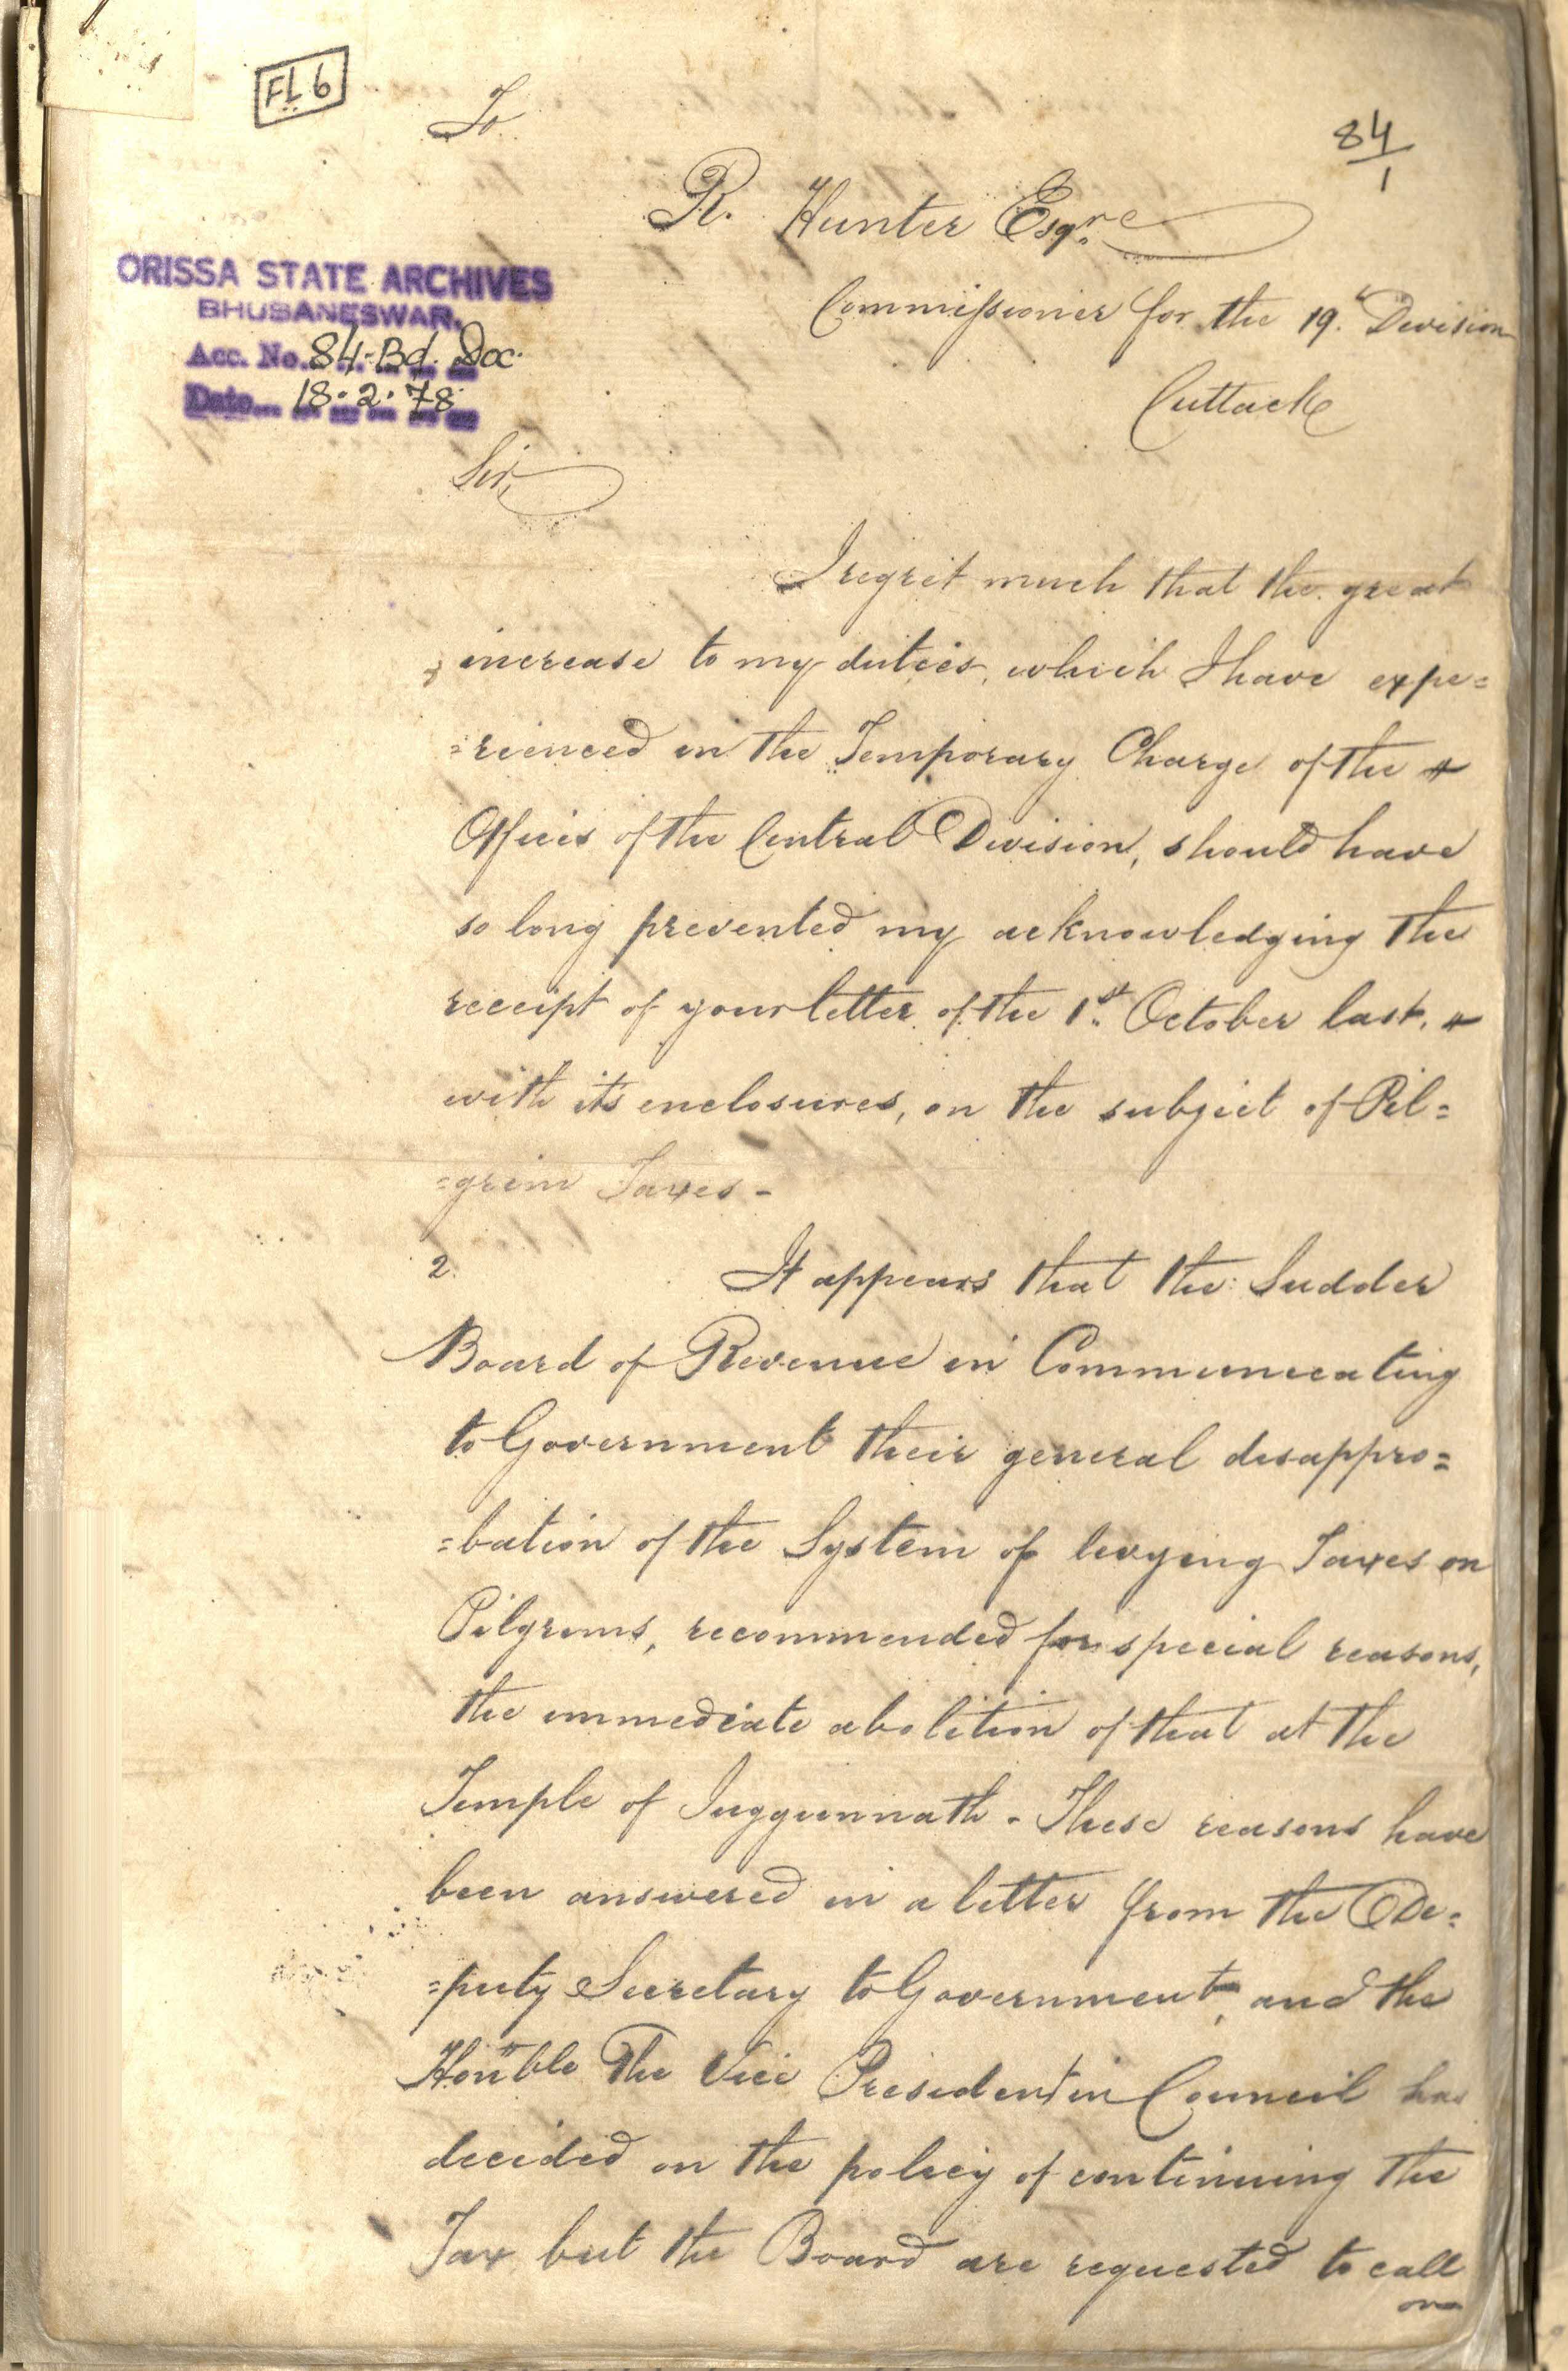 FL 6
To
84/1
R. Hunter Esqre.
Commissioner for the 19th Division
Cuttack
ORISSA STATE ARCHIVES
BHUBANESWAR.
Acc. No. 84-Bd. Doc.
Date... 18.2.78
Sir,
I regret much that the great
increase to my duties, which I have expe=
=rienced in the Temporary Charge of the
Offices of the Central Division, should have
so long prevented my acknowledging the
receipt of your letter of the 1st. October last,
with its enclosures, on the subject of Pil=
=grim Taxes -
2. It appears that the Sudder
Board of Revenue in Communicating
to Government their general disappro=
=bation of the System of levying Taxes on
Pilgrims, recommended for special reasons,
the immediate abolition of that at the
Temple of Juggunnath - These reasons have
been answered in a letter from the De=
=puty Secretary to Government, and the
Hon'ble The Vice President in Council has
decided on the policy of continuing the
Tax but the Board are requested to call
on